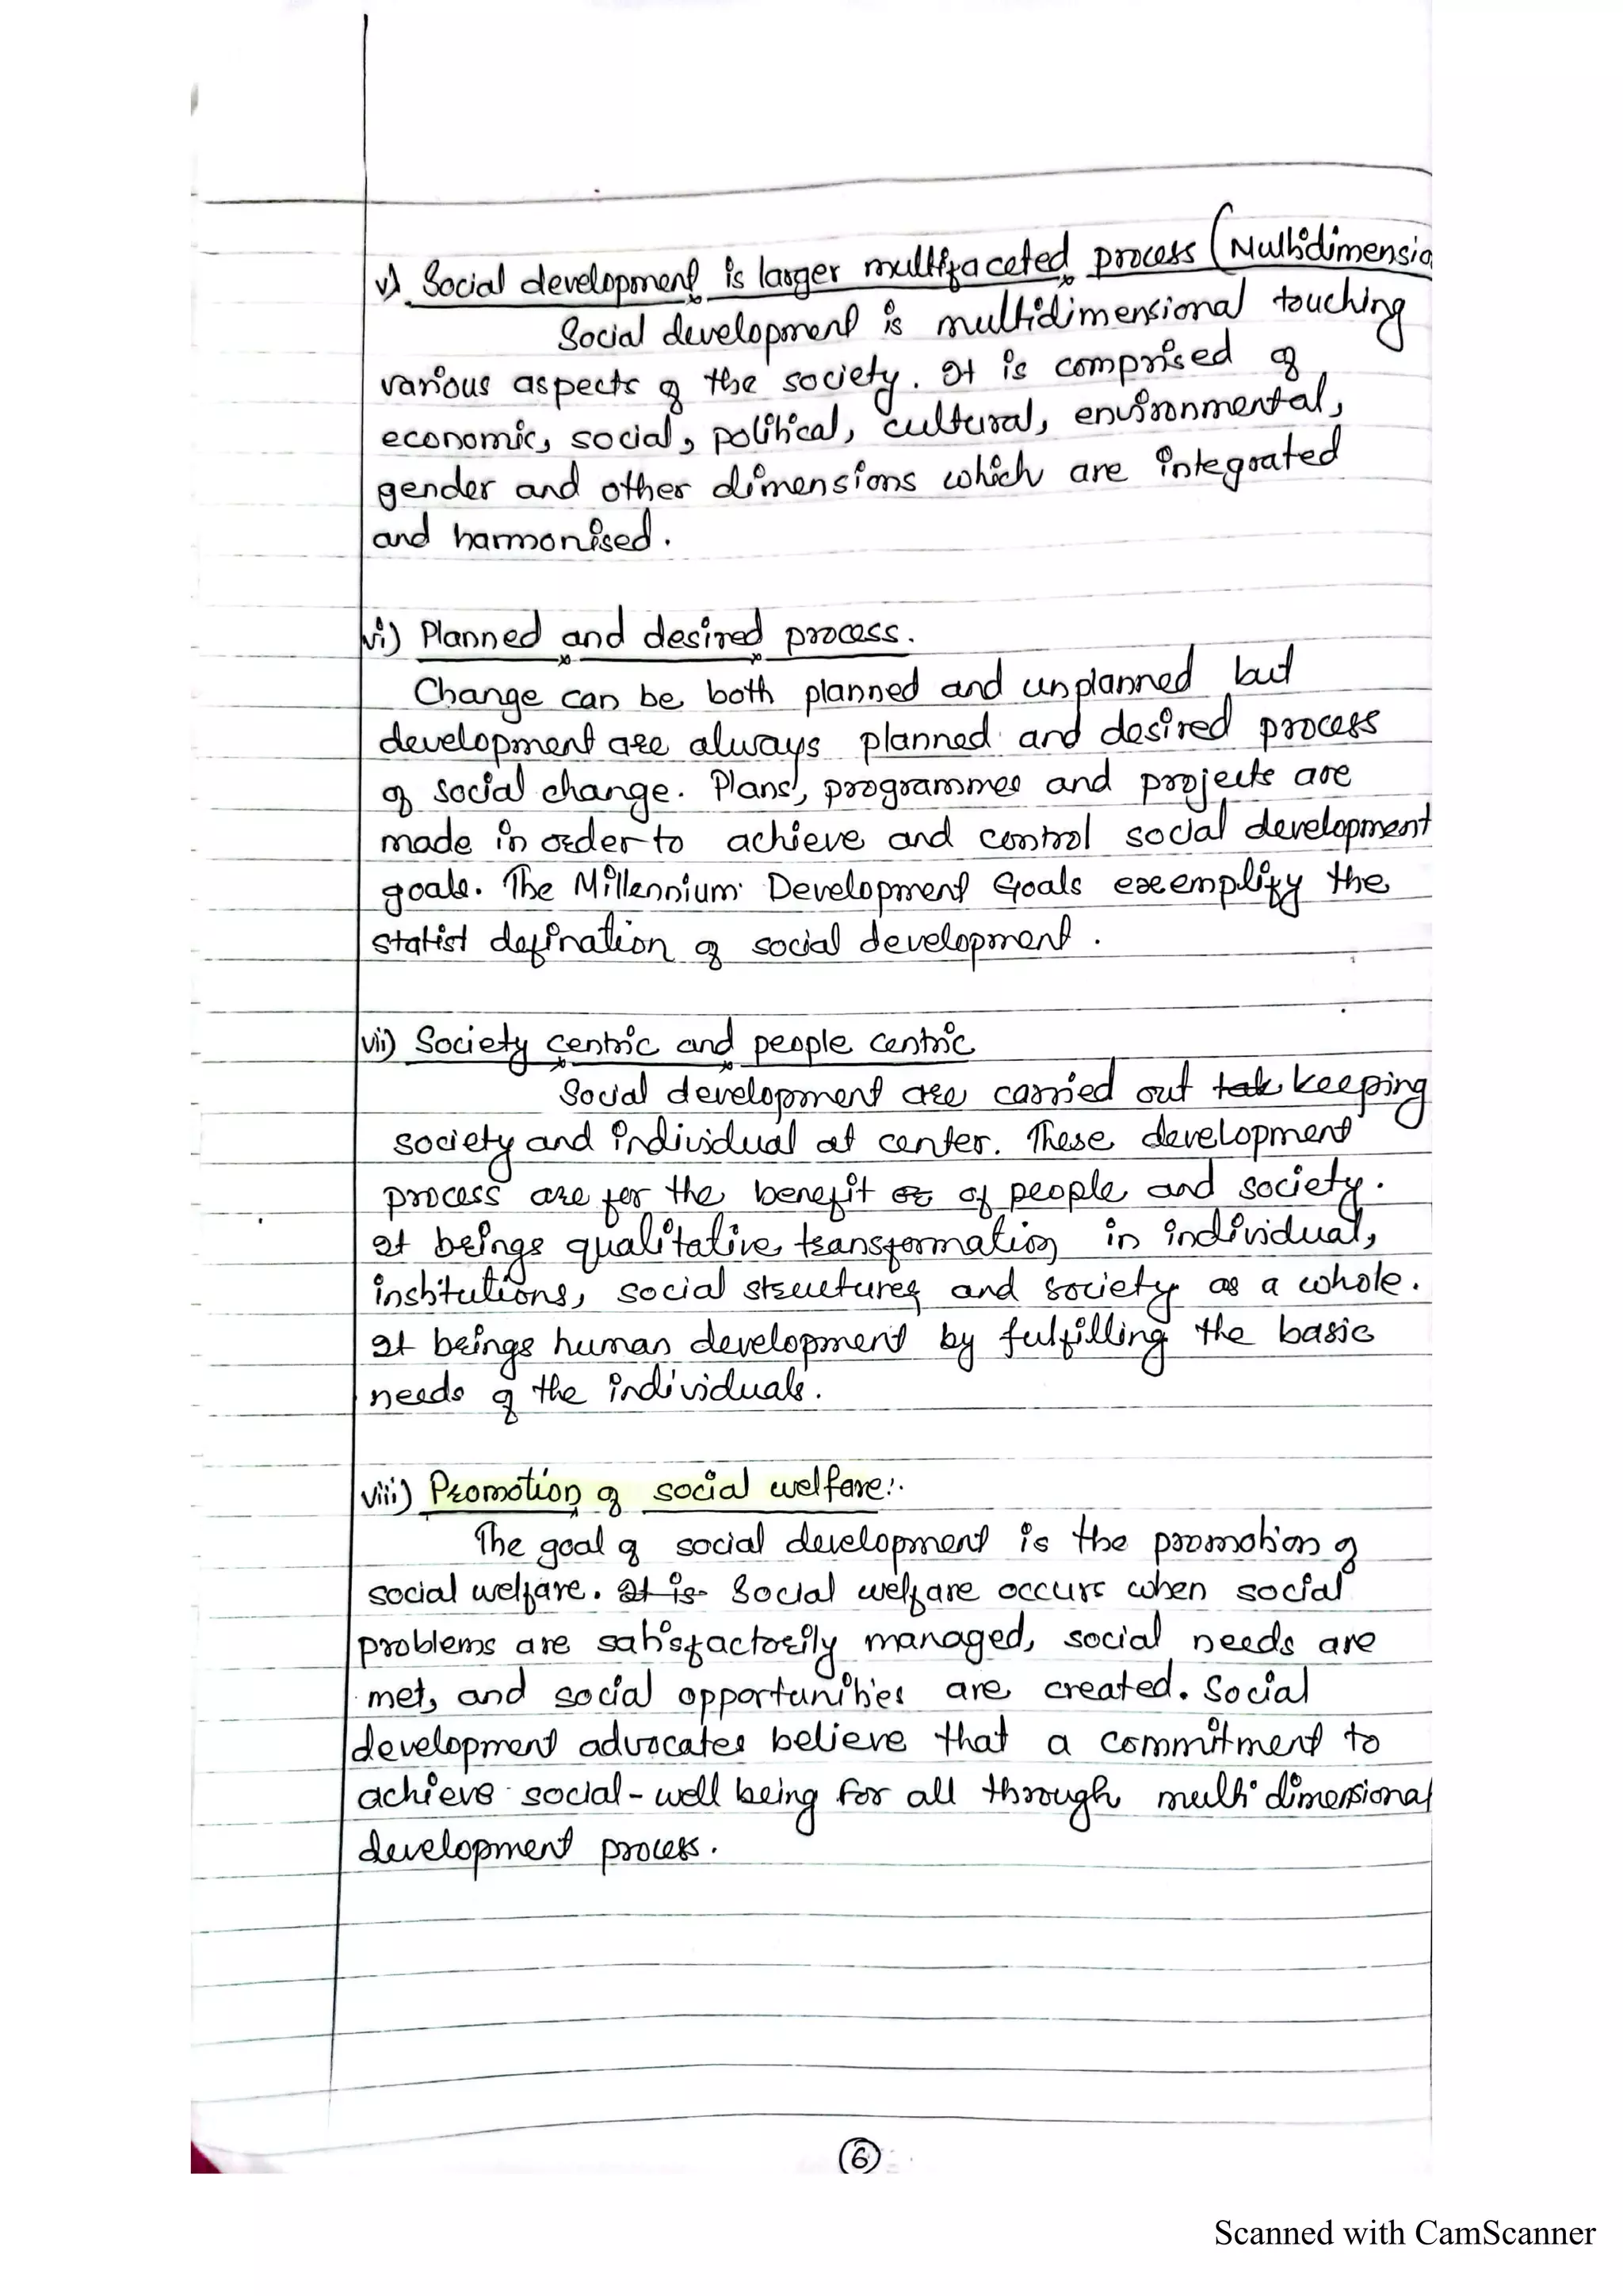 v) Social development is larger multifaceted process (Multidimensio
Social development is multidimensional touching
various aspects of the society. It is comprised of
economic, social, political, cultural, environmental,
gender and other dimensions which are integrated
and harmonised.
vi) Planned and desired process.
Change can be both planned and unplanned but
development are always planned and desired process
of social change. Plans, programmes and projects are
made in order to achieve and control social development
goals. The Millennium Development Goals exemplify the
statist defination of social development.
vii) Society centric and people centric
Social development are carried out tak keeping
society and individual at center. These development
process are for the benefit or of people and society.
It brings qualitative transformation in individual,
institutions, social structures and society as a whole.
It brings human development by fulfilling the basic
needs of the individuals.
viii) Promotion of social welfare:.
The goal of social development is the promotion of
social welfare. It is Social welfare occurs when social
problems are satisfactorily managed, social needs are
met, and social opportunities are created. Social
development advocates believe that a commitment to
achieve social-well being for all through multi dimensional
development process.
6
Scanned with CamScanner